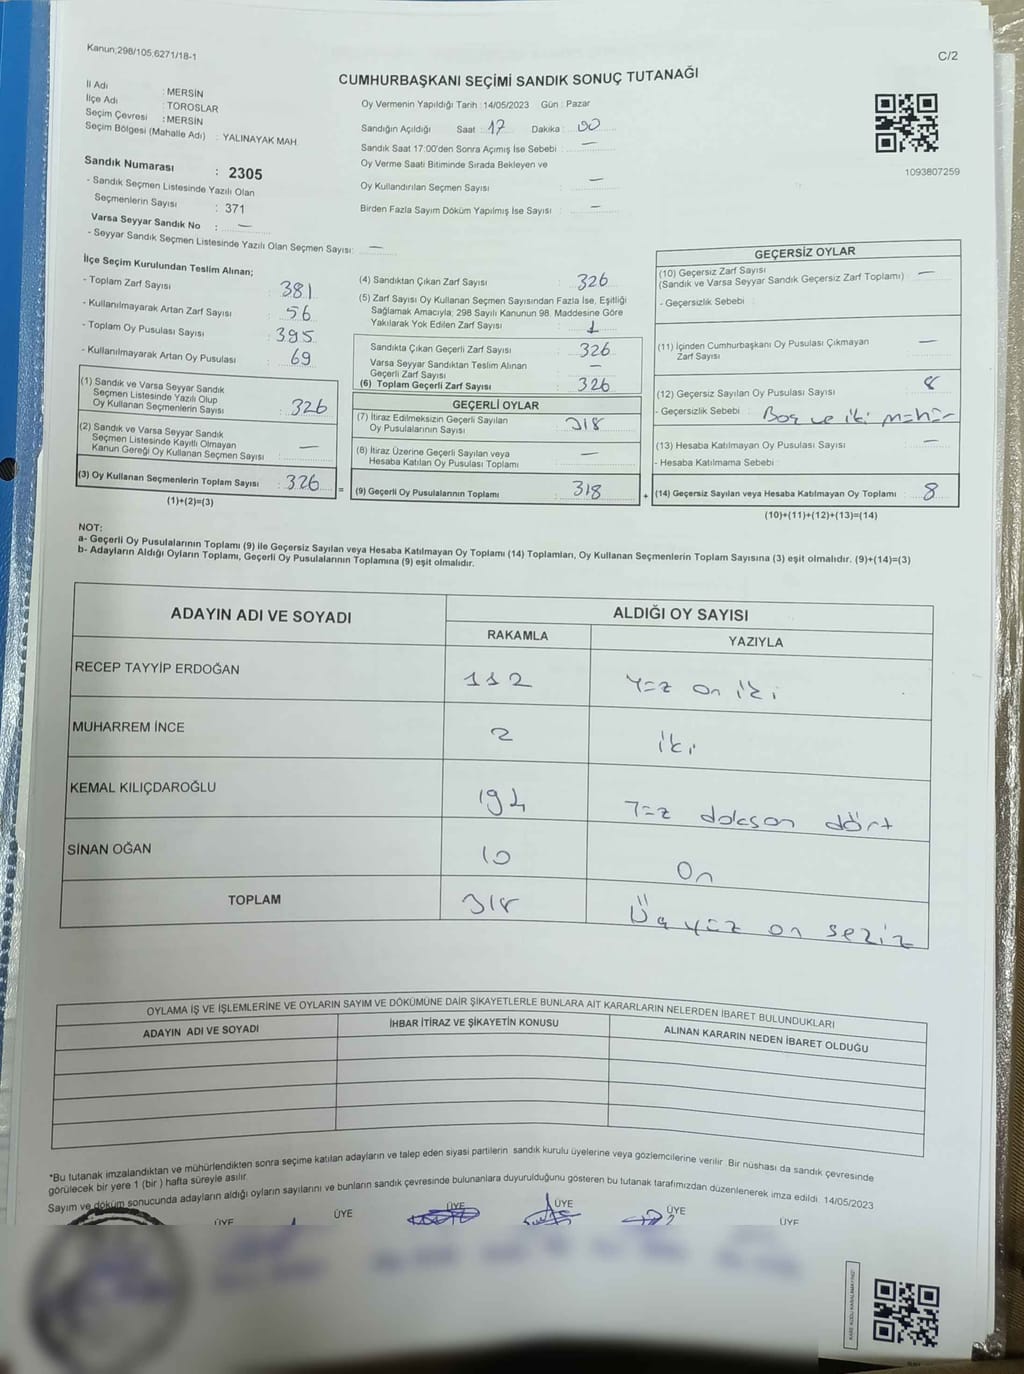 Kanun;298/105,6271/18-1
C/2
CUMHURBAŞKANI SEÇİMİ SANDIK SONUÇ TUTANAĞI
İl Adı : MERSİN
İlçe Adı : TOROSLAR
Seçim Çevresi : MERSİN
Seçim Bölgesi (Mahalle Adı) : YALINAYAK MAH.
Sandık Numarası : 2305
- Sandık Seçmen Listesinde Yazılı Olan
Seçmenlerin Sayısı : 371
Varsa Seyyar Sandık No : —
- Seyyar Sandık Seçmen Listesinde Yazılı Olan Seçmen Sayısı: —
Oy Vermenin Yapıldığı Tarih : 14/05/2023 Gün : Pazar
Sandığın Açıldığı Saat : 17 Dakika : 00
Sandık Saat 17:00'den Sonra Açımış İse Sebebi : —
Oy Verme Saati Bitiminde Sırada Bekleyen ve
Oy Kullandırılan Seçmen Sayısı : —
Birden Fazla Sayım Döküm Yapılmış İse Sayısı : —
1093807259
İlçe Seçim Kurulundan Teslim Alınan;
- Toplam Zarf Sayısı : 381
- Kullanılmayarak Artan Zarf Sayısı : 56
- Toplam Oy Pusulası Sayısı : 395
- Kullanılmayarak Artan Oy Pusulası : 69
(1) Sandık ve Varsa Seyyar Sandık
Seçmen Listesinde Yazılı Olup
Oy Kullanan Seçmenlerin Sayısı : 326
(2) Sandık ve Varsa Seyyar Sandık
Seçmen Listesinde Kayıtlı Olmayan
Kanun Gereği Oy Kullanan Seçmen Sayısı : —
(3) Oy Kullanan Seçmenlerin Toplam Sayısı : 326 =
(1)+(2)=(3)
(4) Sandıktan Çıkan Zarf Sayısı : 326
(5) Zarf Sayısı Oy Kullanan Seçmen Sayısından Fazla İse, Eşitliği
Sağlamak Amacıyla; 298 Sayılı Kanunun 98. Maddesine Göre
Yakılarak Yok Edilen Zarf Sayısı : 1
Sandıkta Çıkan Geçerli Zarf Sayısı : 326
Varsa Seyyar Sandıktan Teslim Alınan
Geçerli Zarf Sayısı : —
(6) Toplam Geçerli Zarf Sayısı : 326
GEÇERLİ OYLAR
(7) İtiraz Edilmeksizin Geçerli Sayılan
Oy Pusulalarının Sayısı : 318
(8) İtiraz Üzerine Geçerli Sayılan veya
Hesaba Katılan Oy Pusulası Toplamı : —
(9) Geçerli Oy Pusulalarının Toplamı : 318 +
GEÇERSİZ OYLAR
(10) Geçersiz Zarf Sayısı
(Sandık ve Varsa Seyyar Sandık Geçersiz Zarf Toplamı) : —
- Geçersizlik Sebebi :
(11) İçinden Cumhurbaşkanı Oy Pusulası Çıkmayan
Zarf Sayısı : —
(12) Geçersiz Sayılan Oy Pusulası Sayısı : 8
- Geçersizlik Sebebi : Boş ve iki mühür
(13) Hesaba Katılmayan Oy Pusulası Sayısı : —
- Hesaba Katılmama Sebebi :
(14) Geçersiz Sayılan veya Hesaba Katılmayan Oy Toplamı : 8
(10)+(11)+(12)+(13)=(14)
NOT:
a- Geçerli Oy Pusulalarının Toplamı (9) ile Geçersiz Sayılan veya Hesaba Katılmayan Oy Toplamı (14) Toplamları, Oy Kullanan Seçmenlerin Toplam Sayısına (3) eşit olmalıdır. (9)+(14)=(3)
b- Adayların Aldığı Oyların Toplamı, Geçerli Oy Pusulalarının Toplamına (9) eşit olmalıdır.
ADAYIN ADI VE SOYADI
ALDIĞI OY SAYISI
RAKAMLA YAZIYLA
RECEP TAYYİP ERDOĞAN 112 Yüz on iki
MUHARREM İNCE 2 İki
KEMAL KILIÇDAROĞLU 194 Yüz dokson dört
SİNAN OĞAN 10 On
TOPLAM 318 Üç yüz on seziz
OYLAMA İŞ VE İŞLEMLERİNE VE OYLARIN SAYIM VE DÖKÜMÜNE DAİR ŞİKAYETLERLE BUNLARA AİT KARARLARIN NELERDEN İBARET BULUNDUKLARI
ADAYIN ADI VE SOYADI İHBAR İTİRAZ VE ŞİKAYETİN KONUSU ALINAN KARARIN NEDEN İBARET OLDUĞU
*Bu tutanak imzalandıktan ve mühürlendikten sonra seçime katılan adayların ve talep eden siyasi partilerin sandık kurulu üyelerine veya gözlemcilerine verilir. Bir nüshası da sandık çevresinde
görülecek bir yere 1 (bir ) hafta süreyle asılır.
Sayım ve döküm sonucunda adayların aldığı oyların sayılarını ve bunların sandık çevresinde bulunanlara duyurulduğunu gösteren bu tutanak tarafımızdan düzenlenerek imza edildi. 14/05/2023
ÜYE ÜYE ÜYE ÜYE ÜYE ÜYE
KARE KODU KARALAMAYINIZ!